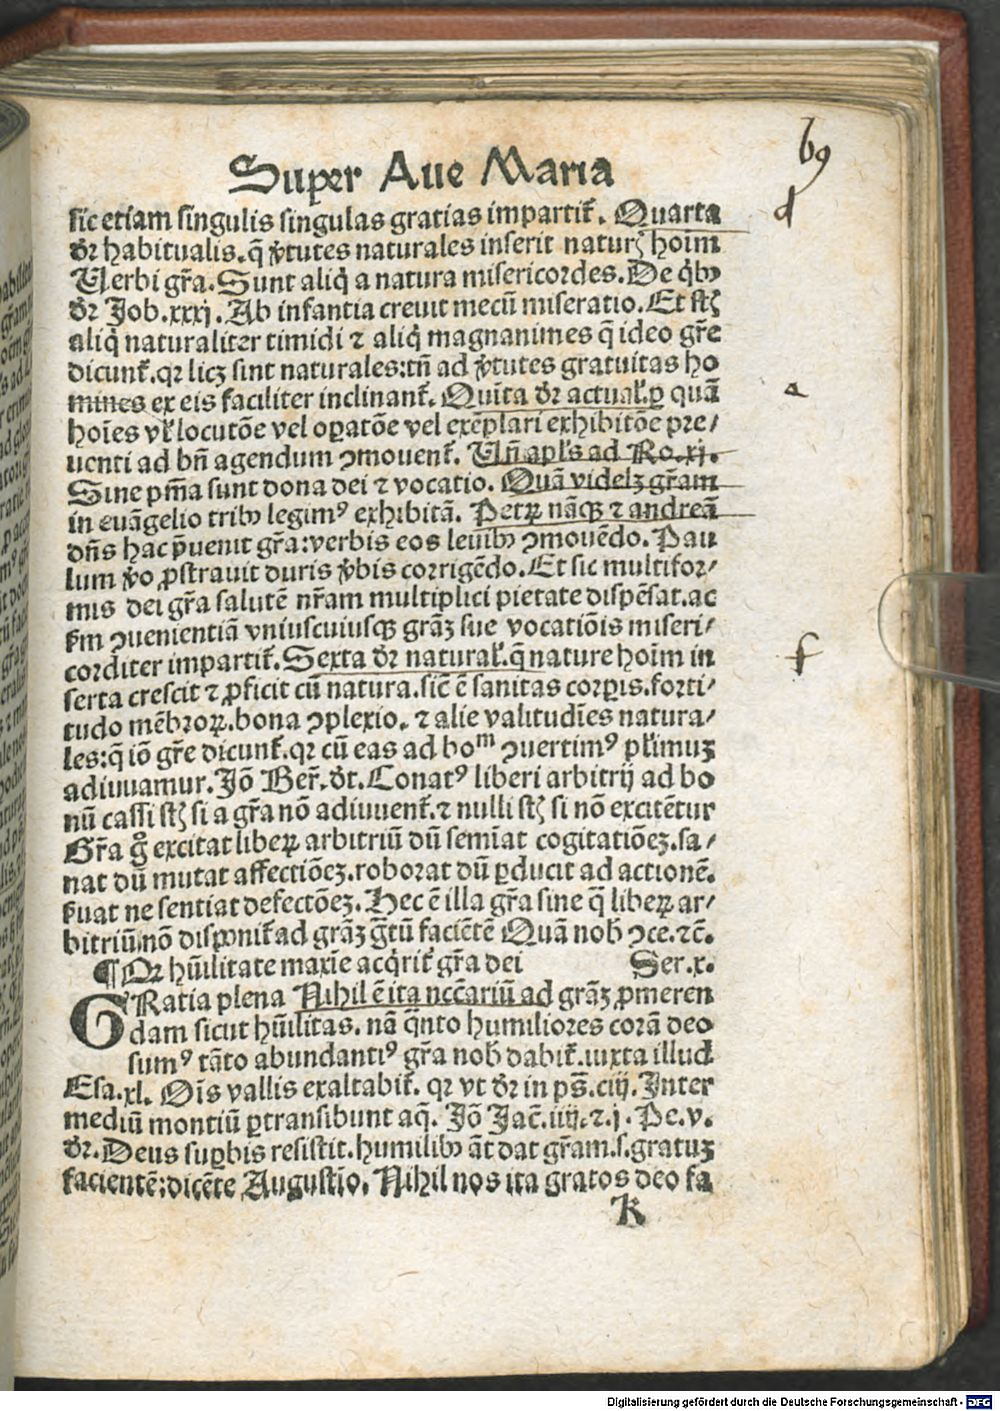 69
Super Aue Maria
d
sic etiam singulis singulas gratias impartit᷒. Quarta
dr̄ habitualis. q̄ v̓tutes naturales inserit naturꝭ hoīm
Uerbi gr̄a. Sunt aliq̇ a natura misericordes. De q̇bꝰ
dr̄ Job. xxxj. Ab infantia creuit mecū miseratio. Et st̄ꝭ
aliq̇ naturaliter timidi ⁊ aliq̇ magnanimes q̄ ideo gr̄e
dicunt᷒. qꝛ licꝫ sint naturales: tn̄ ad v̓tutes gratuitas ho
mines ex eis faciliter inclinant᷒. Quīta dr̄ actual᷒. ꝑ quā
a
hoīes vl᷒ locutōe vel oꝑatōe vel exēplari exhibitōe pre/
uenti ad bn̄ agendum ↄmouent᷒. Un̄ apl᷒s ad Ro. xj.
Sine pn̄ia sunt dona dei ⁊ vocatio. Quā videlꝫ gr̄am
in euāgelio tribꝰ legimꝰ exhibitā. Petrꝝ nāqꝫ ⁊ andreā
dn̄s hac p̄uenit gr̄a: verbis eos leuibꝰ ↄmouēdo. Pau
lum v̓o ꝓstrauit duris v̓bis corrigēdo. Et sic multifor/
mis dei gr̄a salutē nr̄am multiplici pietate dispēsat. ac
s̓m ↄuenientiā vniuscuiusqꝫ grāꝫ sue vocatiōis miseri/
corditer impartit᷒. Sexta dr̄ natural᷒. q̄ nature hoīm in
f
serta crescit ⁊ ꝓficit cū natura. sic̄ ē sanitas corꝑis. forti/
tudo mēbroꝝ. bona ↄplexio. ⁊ alie valitudīes natura/
les: q̄ iō gr̄e dicunt᷒. qꝛ cū eas ad boᵐ ↄuertimꝰ pl᷒imuꝫ
adiuuamur. Jō Ber̄. dt̄. Conatꝰ liberi arbitrij ad bo
nū cassi st̄ꝭ si a gr̄a nō adiuuent᷒. ⁊ nulli st̄ꝭ si nō excitētur
Gr̄a gͦ excitat liberꝝ arbitriū dū semīat cogitatiōeꝫ. sa/
nat dū mutat affectiōeꝫ. roborat dū ꝑducit ad actionē.
s̓uat ne sentiat defectōeꝫ. Hec ē illa gr̄a sine q̄ liberꝝ ar/
bitriū nō disponit᷒ ad grāꝫ gr̄tū faciētē Quā nob̄ ↄce. ⁊c̄.
¶ Qꝛ hūilitate maxīe acq̇rit᷒ gr̄a dei Ser. x.
GRatia plena Nihil ē ita nccariū ad grāꝫ ꝓmeren
dam sicut hūilitas. nā q̄nto humiliores corā deo
sumꝰ tāto abundantiꝰ gr̄a nob̄ dabit᷒. iuxta illud
Esa. xl. Oīs vallis exaltabit᷒. qꝛ vt dr̄ in ps̄. ciij. Inter
mediū montiū ꝑtransibunt aq̄. Jō Jac̄. iiij. ⁊. j. Pe. v.
dr̄. Deus suꝑbis resistit. humilibꝰ āt dat gr̄am. s. gratuꝫ
facientē: dicēte Augustīo. Nihil nos ita gratos deo fa
k
Digitalisierung gefördert durch die Deutsche Forschungsgemeinschaft - DFG